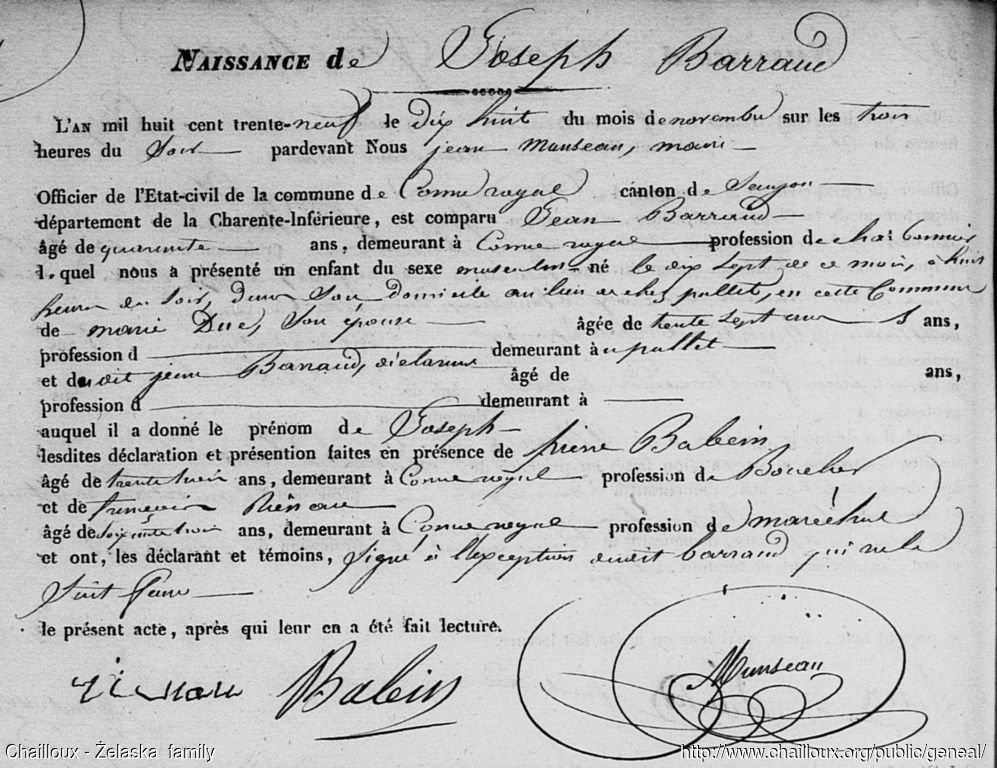 NAISSANCE de Joseph Barraud
L'AN mil huit cent trente-neuf le dix huit du mois de novembre sur les trois
heures du Soir pardevant Nous jean Manseau, maire
Officier de l'Etat-civil de la commune de Corme royal canton de Saujon
département de la Charente-Inférieure, est comparu Jean Barraud
âgé de quarante ans, demeurant à Corme royal profession de charbonnier
lequel nous a présenté un enfant du sexe masculin né le dix Sept de ce mois, à huit
heures du Soir, dans Son domicile au lieu de chez pallet, en cette Commune
de marie Duc, Son épouse âgée de trente Sept ans ans,
profession d demeurant à pallet
et dudit jean Barraud, déclarant âgé de ans,
profession d demeurant à
auquel il a donné le prénom de Joseph
lesdites déclaration et présention faites en présence de pierre Babein
âgé de trente trois ans, demeurant à Corme royal profession de Boucher
et de françois
âgé de soixante trois ans, demeurant à Corme royal profession de maréchal
et ont, les déclarant et témoins, Signé à l'exception dudit barraud qui ne le
Sait faire
le présent acte, après qui leur en a été fait lecture.
Babein Manseau
Chailloux - Żelaska family http://www.chailloux.org/public/geneal/